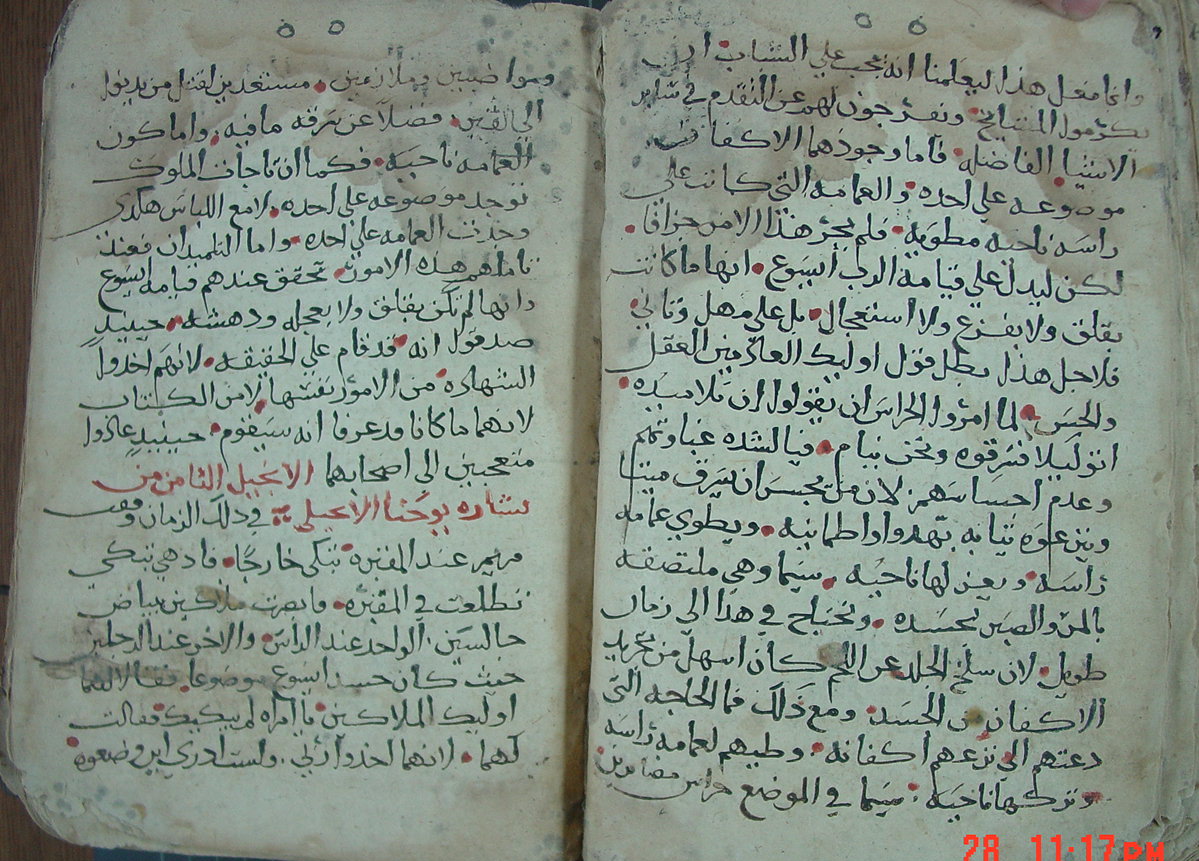 وانما فعل هذا ليعلمنا انه يجب علي الشباب ان
يكرمون المشايخ. ويفرجون لهم عن التقدم في ساير
الاشيا الفاضله. فاما وجودهما الاكفان
موضوعه علي احده. والعمامه التي كانت علي
راسه ناحيه مطويه. فلم يجز هذا الامر جزافا.
لكن ليدل علي قيامة الرب ايسوع. انها ما كانت
بقلق ولا بفزع ولا استعجال. بل علي مهل وتاني.
فلاجل هذا بطل قول اوليك العادمين العقل
والحس. لما امروا الحراس ان يقولوا ان تلاميذه
اتو ليلا فسرقوه ونحن نيام. فيا لشدة غباوتهم
وعدم احساسهم. لان من يحسن ان يسرق ميتا
وينزعوه ثيابه بهدوا واطمانيه. ويطوي عمامة
راسه. ويعزلها ناحيه. سيما وهي ملتصقه
بالمر والصبر بجسده. وتحتاج في هذا الي زمان
طويل. لان سلخ الجلد عن اللحم كان اسهل من تجريد
الاكفان من الجسد. ومع ذلك فما الحاجه التي
دعتهم الي نزعهم اكفانه. وطيهم لعمامة راسه
وتركها ناحيه. سيما في الموضع حراس
ومواضبين وملازمين. مستعدين لقتل من يدنوا
الي القبر. فضلا عن سرقه ما فيه. واما كون
العمامه ناحيه. فكما ان تاجات الملوك
توجد موضوعه علي احده. لا مع اللباس هكدى
وجدت العمامه علي احده. واما التلميدان فعند
تاملهم هذه الامور. تحقق عندهم قيامة ايسوع
وانها لم تكن بقلق ولا بعجله ودهشه. حينيدٍ
صدقوا انه قد قام علي الحقيقه. لانهم اخدوا
الشهاده من الامور نفسها. لا من الكتاب
لانهما ما كانا قد عرفا انه سيقوم. حينيدٍ عادوا
متعجبين الي اصحابهما الانجيل الثامن من
بشارة يوحنا الانجيلي في دلك الزمان وقفت
مريم عند المقبره تبكي خارجًا. فاد هي تبكي
تطلعت في المقبره. فابصرت ملاكين ببياض
جالسين. الواحد عند الراس. والاخر عند الرجلين
حيث كان جسد ايسوع موضوعا. فقالا لها
اوليك الملاكين. يا امراه لم تبكين. فقالت
لهما. لانهما اخدوا ربي. ولست ادري اين وضعوه
28 11:17 PM